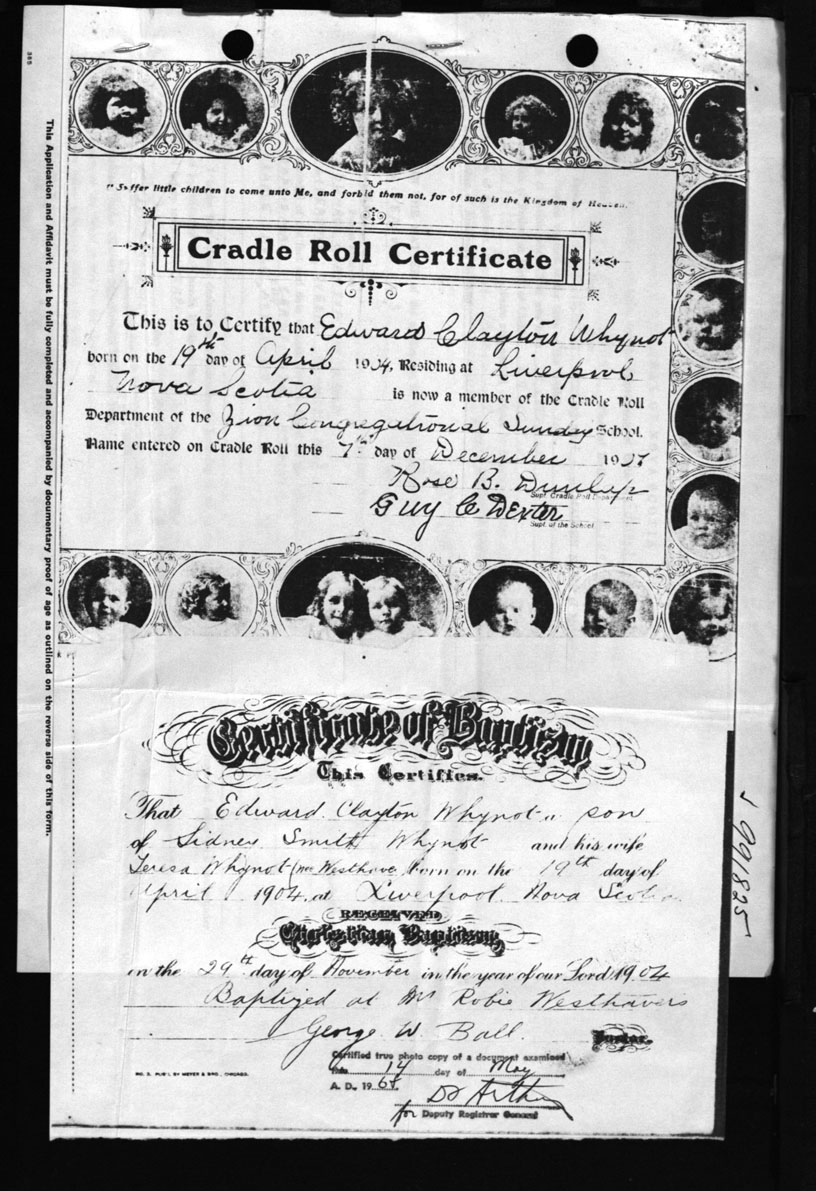 385
This Application and Affidavit must be fully completed and accompanied by documentary proof of age as outlined on the reverse side of this form.
" Suffer little children to come unto Me, and forbid them not, for of such is the Kingdom of Heaven.
Cradle Roll Certificate
This is to Certify that Edward Clayton Whynot
born on the 19th day of April 1904, Residing at Liverpool
Nova Scotia is now a member of the Cradle Roll
Department of the Zion Congregational Sunday School.
Name entered on Cradle Roll this 7th day of December 1907
Rose B. Dunlap
Supt. Cradle Roll Department
Guy C Dexter
Supt. of the School
Certificate of Baptism
This Certifies.
That Edward Clayton Whynot a son
of Sidney Smith Whynot and his wife
Teresa Whynot (nee Westhaver) born on the 19th day of
April 1904, at Liverpool Nova Scotia
RECEIVED
Christian Baptism,
on the 29th day of November in the year of our Lord 1904
Baptized at Mr Robie Westhavers
George W. Ball. Pastor.
Certified true photo copy of a document examined
this 14 day of May
A. D., 196
for Deputy Registrar General
NO. 3. PUB'L BY MEYER & BRO., CHICAGO.
991825